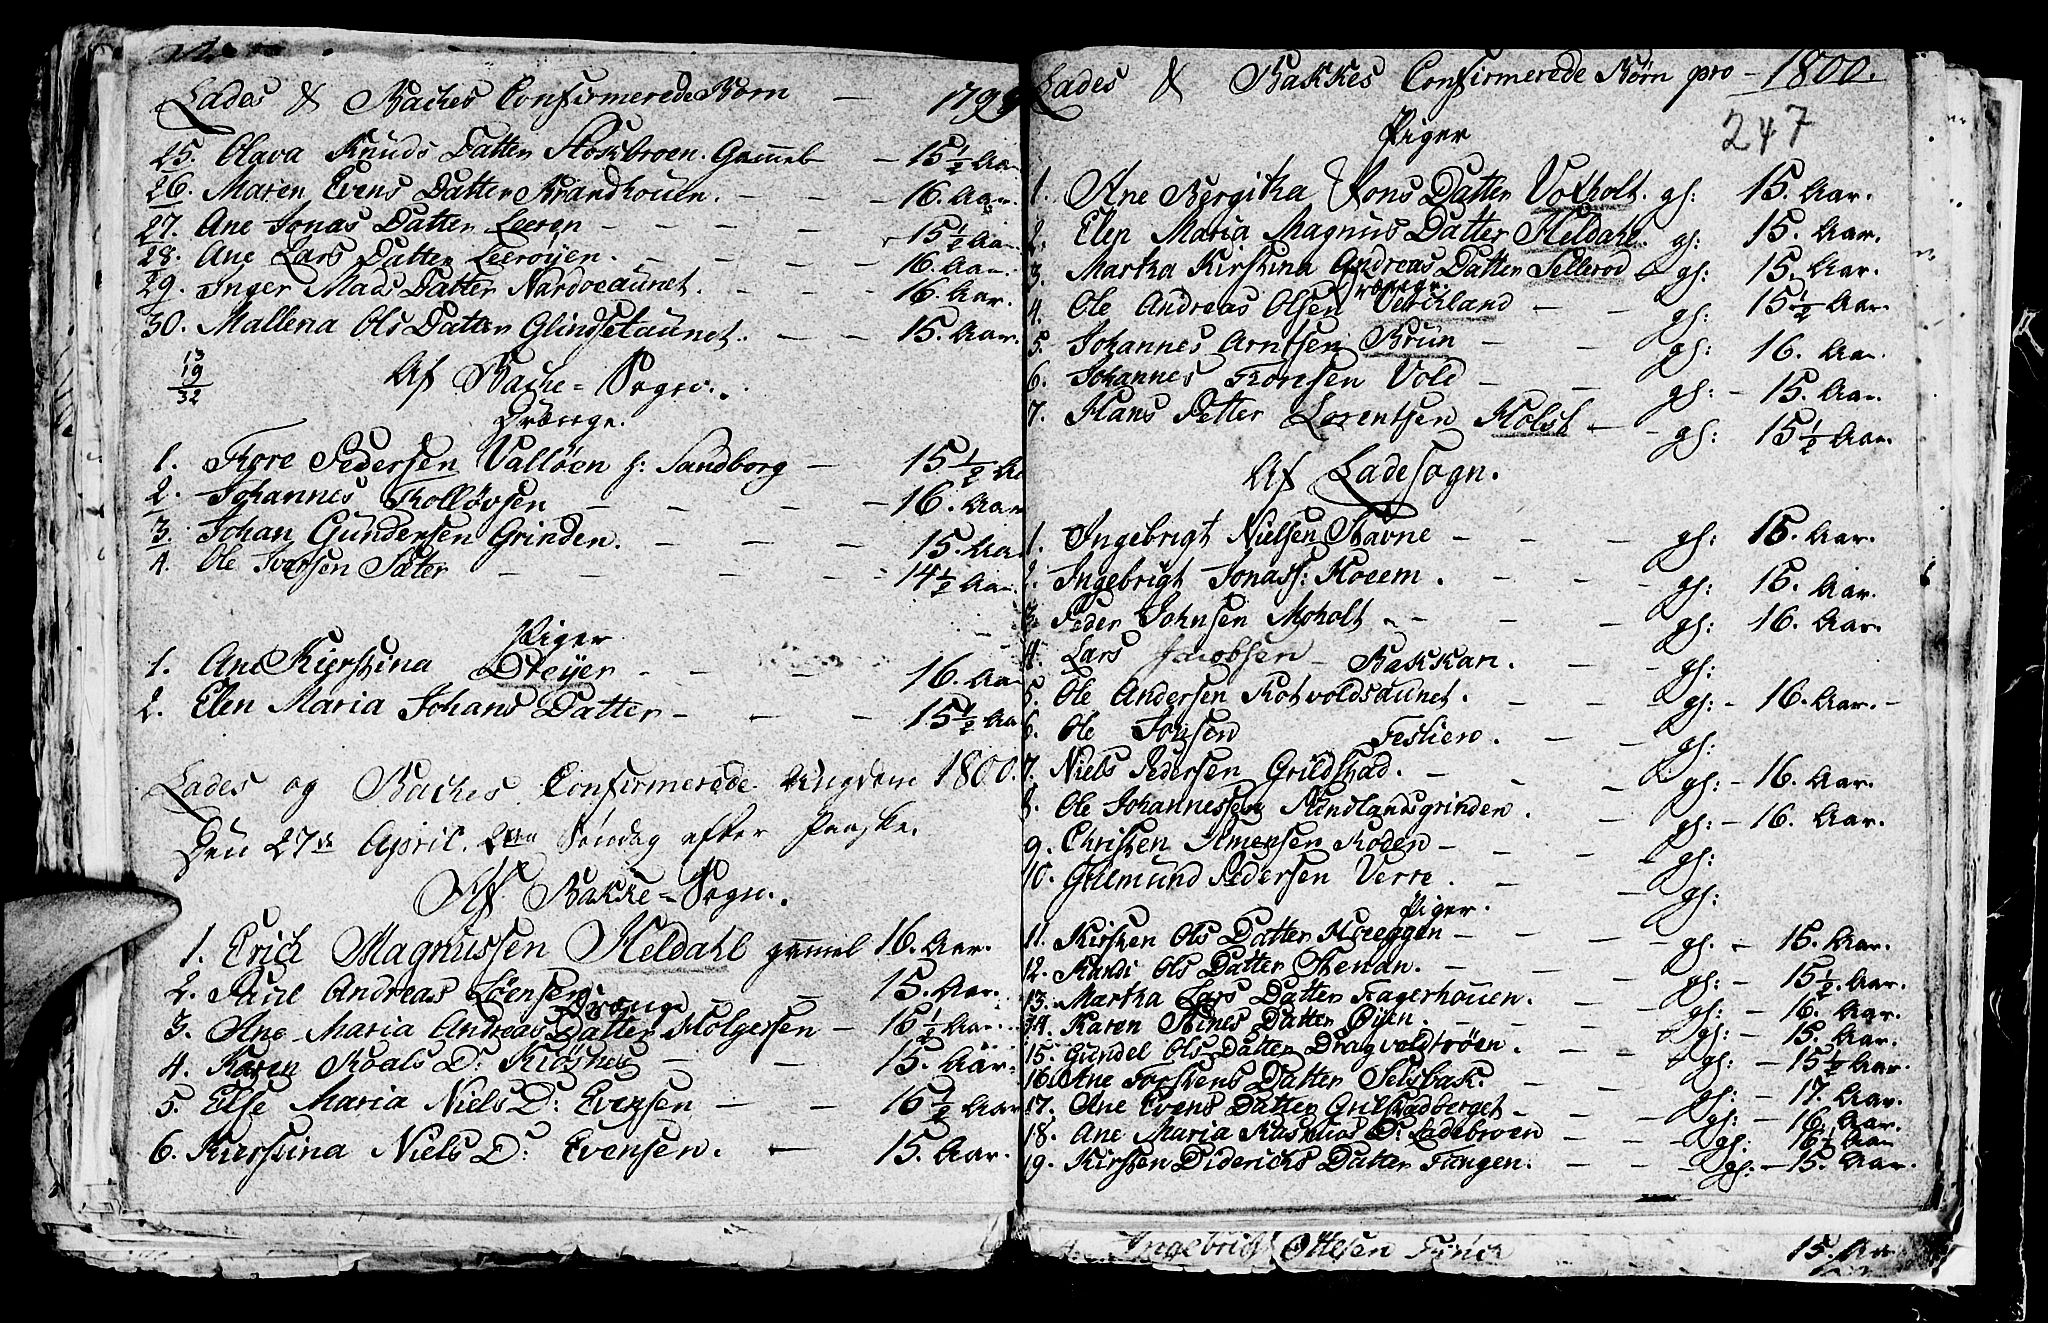 Lades & Baches Confirmerede Børn — 1799
25. Olava Knuds Datter Stokbroen. Gammel — 15 1/2 Aar
26. Maren Evens Datter Brandhouen. — 16. Aar.
27. Ane Jonas Datter Leeren — 15 1/2 Aar
28. Ane Lars Datter Leerøyen. — 16. Aar.
29. Inger Mads Datter Nardoeaunet. — 16. Aar.
30. Mallena Ols Datter Glindsetaunet. — 15. Aar.
13
19
32
Af Bache-Sogn.
Drænge.
1. Tore Pedersen Valløen f: Sandborg — 15 1/2 Aa
2. Johannes Rolløvsen — 16. Aar
3. Johan Gundersen Grinden. — 15. Aa
4. Ole Iversen Sæter — 14 1/2 Aar.
Piger
1. Ane Kierstina Dreyer — 16. Aar
2. Elen Maria Johans Datter — 15 1/2 Aa
Lades og Baches Confirmerede Ungdom 1800.
Den 27de April. 2den Søndag efter Paaske.
Af Bakke-Sogn.
1. Erick Magnussen Heldahl gammel 16. Aar.
2. Paul Andreas Lorensen — 15. Aar.
3. Ane Maria Andreas Datter Holgersen — 16 1/2 Aar
4. Karen Roals D: — 15. Aar.
5. Else Maria Niels D: Evensen — 16 1/2 Aar
6. Kierstina Niels D: Evensen. — 15. Aar.
Lades & Bakkes Confirmerede Børn pro — 1800.
247
Piger
1. Ane Bergitha Jons Datter Votholt. gl: 15. Aar.
2. Elen Maria Magnus Datter Heldahl. gl: 15. Aar.
3. Martha Kirstina Andreas Datter Sellerod gl: 15. Aar.
Drænge.
4. Ole Andreas Olsen Veichland — gl: 15 1/2 Aar
5. Johannes Arntsen Brun — gl: 16. Aar.
6. Johannes Toresen Vold — gl: — 15. Aar.
7. Hans Petter Lorentsen Holst — gl: 15 1/2 Aar
Af Ladesogn.
1. Ingebrigt Nielsen Stavne — gl: 15. Aar.
2. Ingebrigt Jonass: Hoeem. — gl: 16. Aar.
3. Peder Johnsen Moholt — gl: 16. Aar.
4. Lars Jacobsen — Bakkan. — gl:
5. Ole Andersen Rotvoldsaunet. — gl: — 16. Aar. —
6. Ole Jonsen Festien. — gl:
7. Niels Pedersen Grildstad. — gl: — 16. Aar.
8. Ole Johannessen Sundlandsgrinden. — gl: — 16. Aar.
9. Christen Simensen Roden — gl:
10. Gulmund Pedersen Verre. — gl:
Piger.
11. Kirsten Ols Datter Hoeeggen — gl. — 15. Aar.
12. Randi Ols Datter Stenan. — gl: — 15 1/2 Aar.
13. Martha Lars Datter Fagerhouen. — gl: — 16. Aar.
14. Karen Stines Datter Øyen. — gl: — 15. Aar.
15. Gundel Ols Datter Dragvoldtrøen. — gl: — 15 1/2 Aar.
16. Ane Torstens Datter Selsbak. — gl: — 17. Aar.
17. Ane Evens Datter Grilstadberget — gl: — 16. Aar.
18. Ane Maria Rasmus D: Ladebroen — gl: — 16 1/2 Aar
19. Kirsten Didericks Datter Fangen. — gl: — 15. Aar.
Ingebrigt Ottesen 15. Aar